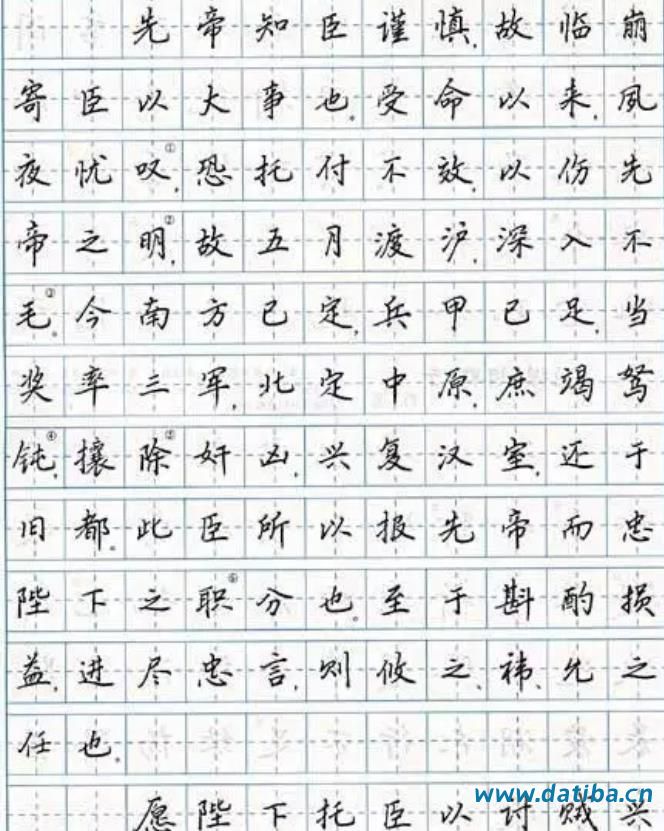 先帝知臣谨慎,故临崩
寄臣以大事也。受命以来,夙
夜忧叹①,恐托付不效,以伤先
帝之明②,故五月渡泸,深入不
毛③。今南方已定,兵甲已足,当
奖率三军,北定中原,庶竭驽
钝④,攘除⑤奸凶,兴复汉室,还于
旧都。此臣所以报先帝而忠
陛下之职⑥分也。至于斟酌损
益,进尽忠言,则攸之、祎、允之
任也。
愿陛下托臣以讨贼兴
www.datiba.cn